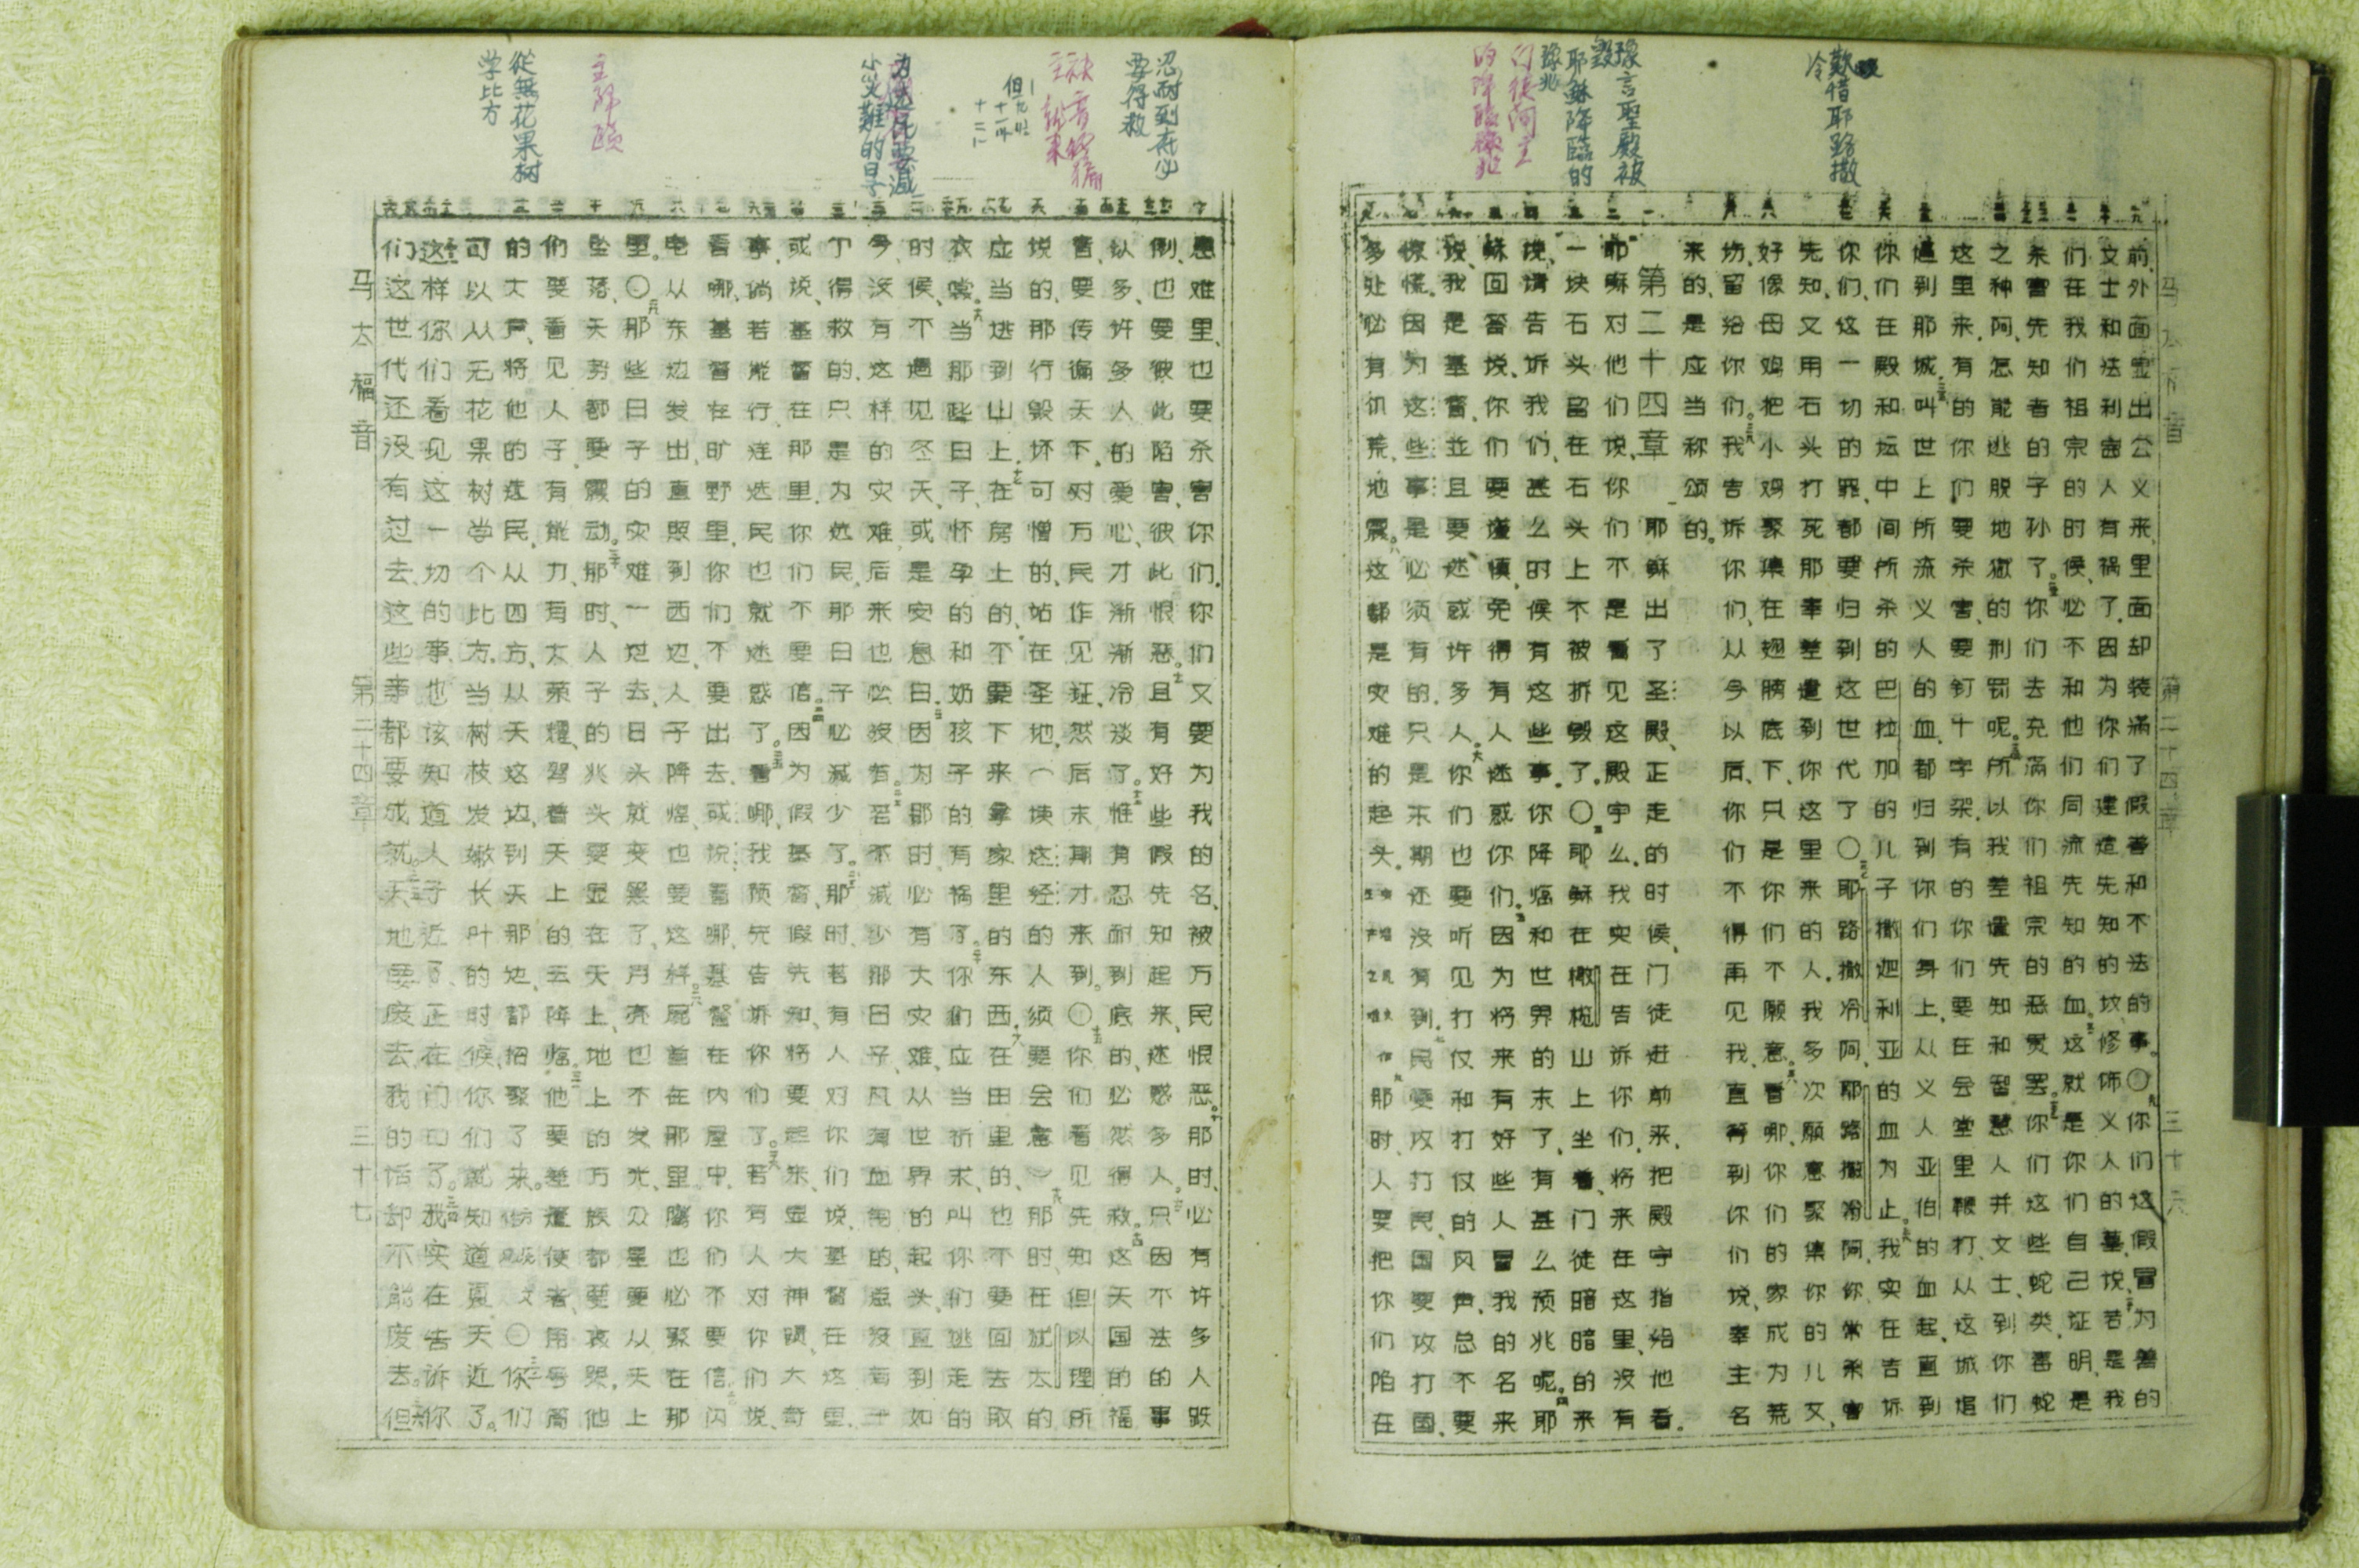 前、外面显出公义来、里面却装满了假善和不法的事。〇你们这假冒为善的
文士和法利赛人有祸了、因为你们建造先知的坟、修饰义人的墓、说、若是我
们在我们祖宗的时候、必不和他们同流先知的血。这就是你们自己证明、是
杀害先知者的子孙了。你们去充满你们祖宗的恶贯罢。你们这些蛇类、毒蛇
之种阿、怎能逃脱地狱的刑罚呢。所以我差遣先知和智慧人并文士、到你们
这里来、有的你们要杀害、要钉十字架、有的你们要在会堂里鞭打、从这城追
逼到那城、叫世上所流义人的血、都归到你们身上、从义人亚伯的血起、直到
你们在殿和坛中间所杀的巴拉加的儿子撒迦利亚的血为止。我实在告诉
你们、这一切的罪、都要归到这世代了〇耶路撒冷阿、耶路撒冷阿、你常杀害
先知、又用石头打死那奉差遣到你这里来的人。我多次愿意聚集你的儿女、
好像母鸡把小鸡聚集在翅膀底下、只是你们不愿意。看哪、你们的家成为荒
场、留给你们。我告诉你们、从今以后、你们不得再见我、直等到你们说、奉主名
来的、是应当称颂的。
第二十四章 耶稣出了圣殿、正走的时候、门徒进前来、把殿宇指给他看。
耶稣对他们说、你们不是看见这殿宇么、我实在告诉你们、将来在这里、没有
一块石头留在石头上不被拆毁了。〇耶稣在橄榄山上坐着、门徒暗暗的来
说、请告诉我们、甚么时候有这些事、你降临和世界的末了有甚么预兆呢。耶
稣回答说、你们要谨慎、免得有人迷惑你们。因为将来有好些人冒我的名来
说、我是基督、並且要迷惑许多人。你们也要听见打仗和打仗的风声、总不要
惊慌。因为这些事是必须有的、只是末期还没有到。民要攻打民、国要攻打国、
多处必有饥荒、地震。这都是灾难的起头。那时人要把你们陷在
马太福音 第二十四章 三十六
歎惜耶路撒冷
豫言聖殿被毀
耶穌降臨的豫兆
门徒问主的降臨豫兆
患难里、也要杀害你们、你们又要为我的名、被万民恨恶。那时、必有许多人
倒、也要彼此陷害、彼此恨恶。且有好些假先知起来、迷惑多人。只因不法的事
以多、许多人的爱心、才渐渐冷淡了。惟有忍耐到底的、必然得救。这天国的福
音、要传遍天下、对万民作见证、然后末期才来到。〇你们看见先知但以理所
说的、那行毁坏可憎的、站在圣地、（读这经的人须要会意）那时、在犹太的
应当逃到山上、在房上的、不要下来拿家里的东西、在田里的、也不要回去取
衣裳、当那些日子、怀孕的和奶孩子的有祸了。你们应当祈求、叫你们逃走的
时候、不遇见冬天、或是安息日。因为那时必有大灾难、从世界的起头、直到如
今、没有这样的灾难、后来也必没有。若不减少那日子、凡有血肉的、总没有一
个得救的、只是为选民、那日子必减少了。那时若有人对你们说、基督在这里、
或说、基督在那里、你们不要信。因为假基督、假先知、将要起来、显大神蹟、大奇
事、倘若能行、连选民也就迷惑了。看哪、我预先告诉你们了。若有人对你们说、
看哪、基督在旷野里、你们不要出去、或说、看哪、基督在内屋中、你们不要信、闪
电从东边发出、直照到西边、人子降临、也要这样。尸首在那里、鹰也必聚在那
里。〇那些日子的灾难一过去、日头就变黑了、月亮也不发光、众星要从天上
坠落、天势都要震动。那时、人子的兆头要显在天上、地上的万族都要哀哭、他
们要看见人子、有能力、有大荣耀、驾着天上的云降临。他要差遣使者、用号筒
的大声、将他的选民、从四方、从天这边、到天那边、都招聚了来。你们
可以从无花果树学个比方、当树枝发嫩长叶的时候、你们就知道夏天近了。
这样你们看见这一切的事、也该知道人子近了、正在门口了。我实在告诉你
们这世代还没有过去、这些事都要成就。天地要废去、我的话却不能废去。但
马太福音 第二十四章 三十七
忍耐到底必要得救
小災難的日子
从無花果树学比方